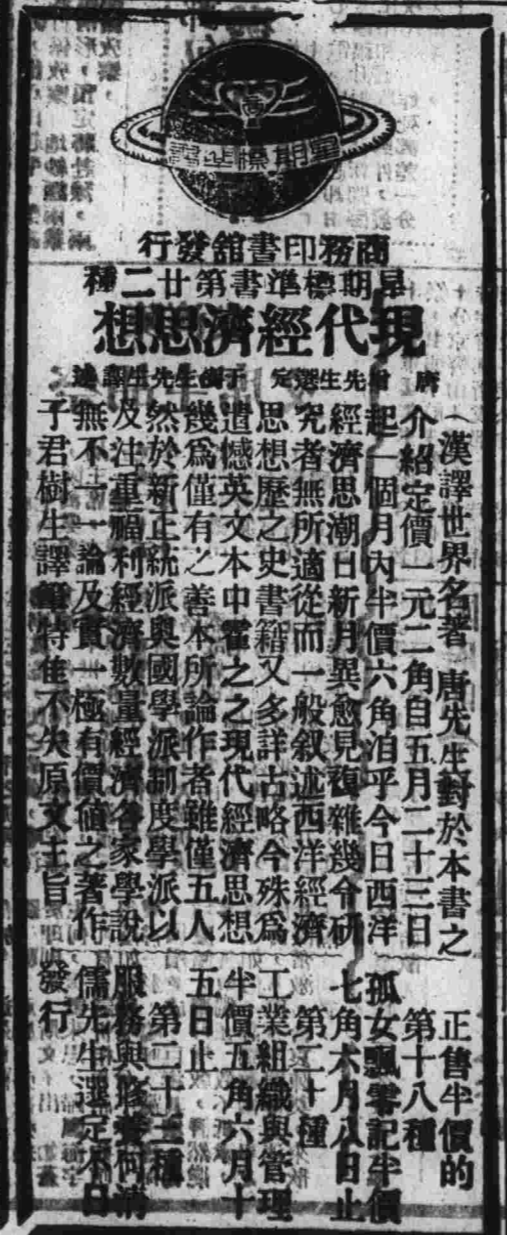 星期標準書
商務印書館發行
星期標準書第廿二種
現代經濟思想
唐 先生選定 于樹生先生譯述
(漢譯世界名著)唐先生對於本書之
介紹定價一元二角自五月二十三日
起一個月內半價六角洎乎今日西洋
經濟思潮日新月異愈見複雜幾令研
究者無所適從而一般叙述西洋經濟
思想歷之史書籍又多詳古略今殊爲
遺憾英文本中霍之之現代經濟思想
幾爲僅有之善本所論作者雖僅五人
然於新正統派與國學派制度學派以
及注重福利經濟數量經濟各家學說
無不一一論及實一極有價值之著作
于君樹生譯筆特佳不失原文主旨
正售半價的
第十八種
孤女飄零記半價
七角六月八日止
第二十種
工業組織與管理
半價五角六月十
五日止
第二十三種
服務與修養何清
儒先生選定不日
發行